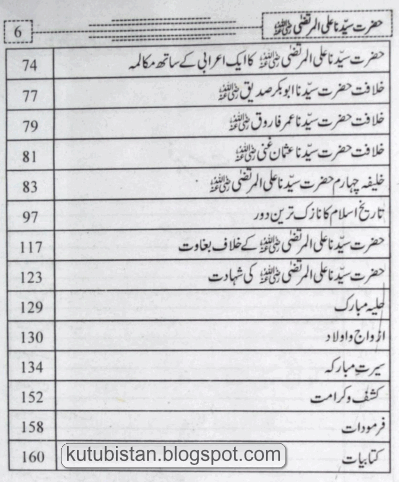 حضرت سیّدنا علی المرتضٰی رضی اللہ عنہ 6
حضرت سیّدنا علی المرتضٰی رضی اللہ عنہ کا ایک اعرابی کے ساتھ مکالمہ 74
خلافت حضرت سیّدنا ابوبکر صدیق رضی اللہ عنہ 77
خلافت حضرت سیّدنا عمر فاروق رضی اللہ عنہ 79
خلافت حضرت سیّدنا عثمان غنی رضی اللہ عنہ 81
خلیفہ چہارم حضرت سیّدنا علی المرتضٰی رضی اللہ عنہ 83
تاریخ اسلام کا نازک ترین دور 97
حضرت سیّدنا علی المرتضٰی رضی اللہ عنہ کے خلاف بغاوت 117
حضرت سیّدنا علی المرتضٰی رضی اللہ عنہ کی شہادت 123
حلیہ مبارک 129
ازواج و اولاد 130
سیرتِ مبارکہ 134
کشف و کرامت 152
فرمودات 158
کتابیات 160
kutubistan.blogspot.com